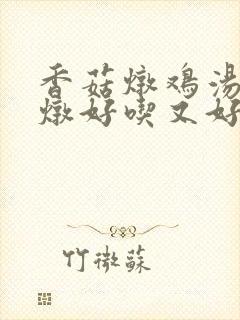 香菇燉鸡湯
燉好喫又好
竹微蘇